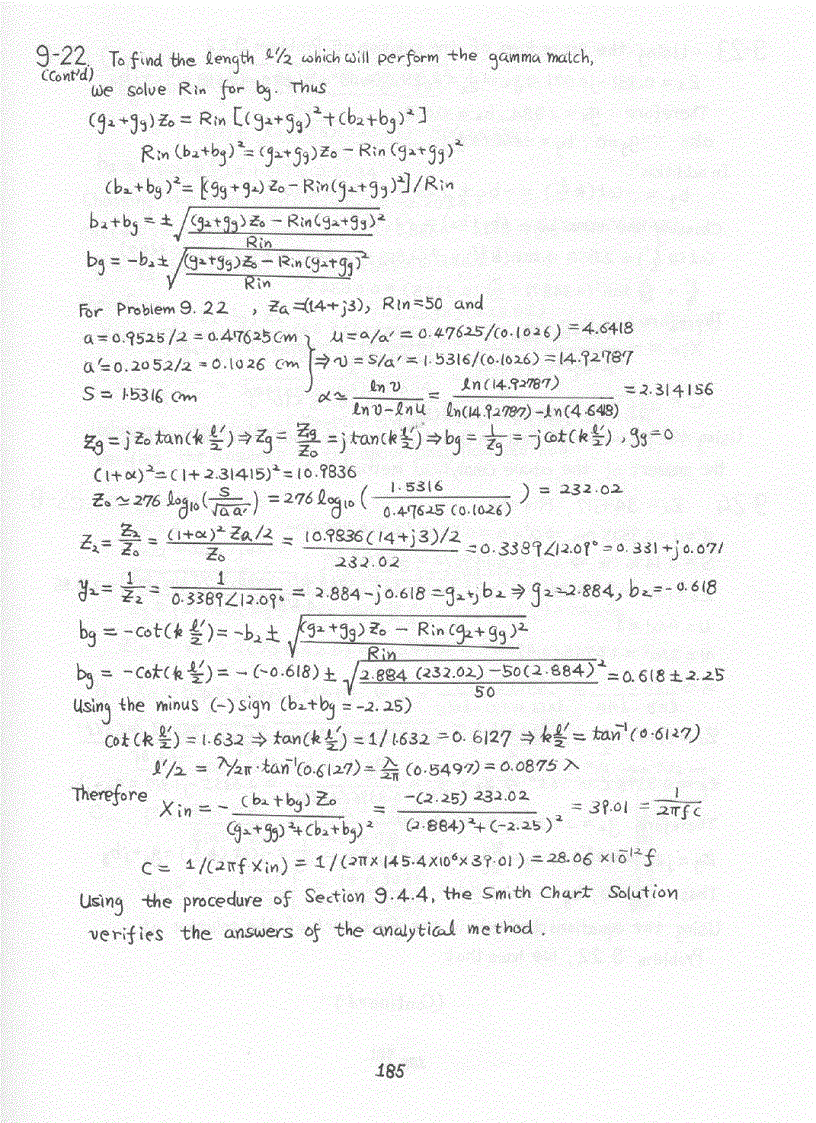 9-22. To find the length ℓ'/2 which will perform the gamma match,
(Cont'd) we solve Rin for bg. Thus
(g₂+gg)Z₀ = Rin [(g₂+gg)²+(b₂+bg)²]
Rin(b₂+bg)² = (g₂+gg)Z₀ − Rin(g₂+gg)²
(b₂+bg)² = [(gg+g₂)Z₀ − Rin(g₂+gg)²]/Rin
b₂+bg = ± √((g₂+gg)Z₀ − Rin(g₂+gg)² / Rin)
bg = −b₂ ± √((g₂+gg)Z₀ − Rin(g₂+gg)² / Rin)
For Problem 9.22 , Za=(14+j3), Rin=50 and
a=0.9525/2=0.47625cm } u=a/a'=0.47625/(0.1026)=4.6418
a'=0.2052/2=0.1026 cm } ⇒ v=s/a'=1.5316/(0.1026)=14.92787
S = 1.5316 cm } α ≃ ln v / (ln v − ln u) = ln(14.92787) / (ln(14.92787)−ln(4.648)) = 2.314156
Zg = jZ₀ tan(k ℓ'/2) ⇒ zg = Zg/Z₀ = j tan(k ℓ'/2) ⇒ bg = 1/zg = −j cot(k ℓ'/2) , gg=0
(1+α)²=(1+2.31415)²=10.9836
Z₀ ≃ 276 log₁₀(S/√aa') = 276 log₁₀(1.5316 / 0.47625(0.1026)) = 232.02
z₂ = Z₂/Z₀ = (1+α)² Za/2 / Z₀ = 10.9836(14+j3)/2 / 232.02 = 0.3389∠12.09° = 0.331+j0.071
y₂ = 1/z₂ = 1/0.3389∠12.09° = 2.884−j0.618 = g₂+jb₂ ⇒ g₂=2.884, b₂=−0.618
bg = −cot(k ℓ'/2) = −b₂ ± √((g₂+gg)Z₀ − Rin(g₂+gg)² / Rin)
bg = −cot(k ℓ'/2) = −(−0.618) ± √(2.884(232.02)−50(2.884)² / 50) = 0.618 ± 2.25
Using the minus (−) sign (b₂+bg = −2.25)
cot(k ℓ'/2) = 1.632 ⇒ tan(k ℓ'/2) = 1/1.632 = 0.6127 ⇒ k ℓ'/2 = tan⁻¹(0.6127)
ℓ'/2 = λ/2π · tan⁻¹(0.6127) = λ/2π (0.5497) = 0.0875 λ
Therefore Xin = − (b₂+bg)Z₀ / ((g₂+gg)²+(b₂+bg)²) = −(2.25) 232.02 / ((2.884)²+(−2.25)²) = 39.01 = 1/2πfc
C = 1/(2πf Xin) = 1/(2π×145.4×10⁶×39.01) = 28.06 ×10⁻¹² f
Using the procedure of Section 9.4.4, the Smith Chart Solution
verifies the answers of the analytical method.
185